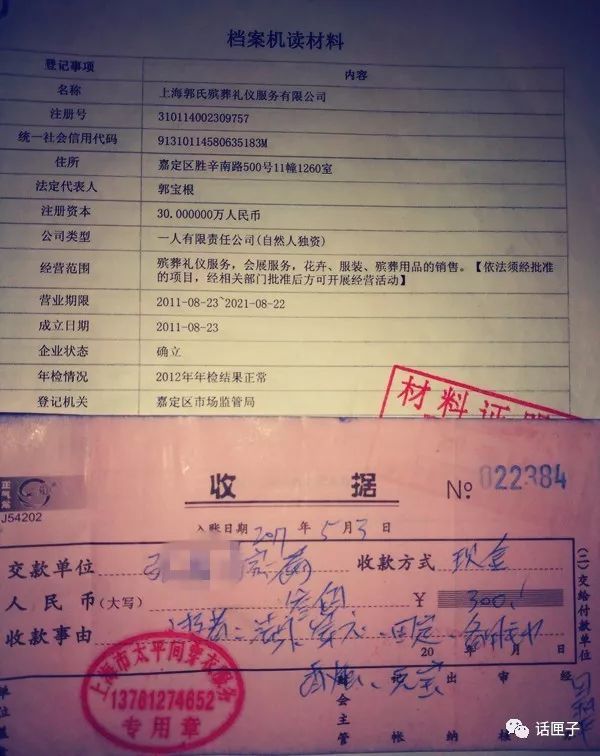 档案机读材料
登记事项 内容
名称 上海郭氏殡葬礼仪服务有限公司
注册号 310114002309757
统一社会信用代码 91310114580635183M
住所 嘉定区胜辛南路500号11幢1260室
法定代表人 郭宝根
注册资本 30.000000万人民币
公司类型 一人有限责任公司(自然人独资)
经营范围 殡葬礼仪服务，会展服务，花卉、服装、殡葬用品的销售。【依法须经批准
的项目，经相关部门批准后方可开展经营活动】
营业期限 2011-08-23~2021-08-22
成立日期 2011-08-23
企业状态 确立
年检情况 2012年年检结果正常
登记机关 嘉定区市场监管局
材料证
J54202
收 据 № 022384
入账日期 2017 年 5 月 3 日
交款单位 收款方式 现金
人民币(大写) 叁佰 ¥ 300
收款事由 穿衣、固定、
20 年 月 日
上海市太平间穿衣服务
13761274652
专用章
单位 会主管 出纳 审核 经
(二)交给付款单位
话匣子